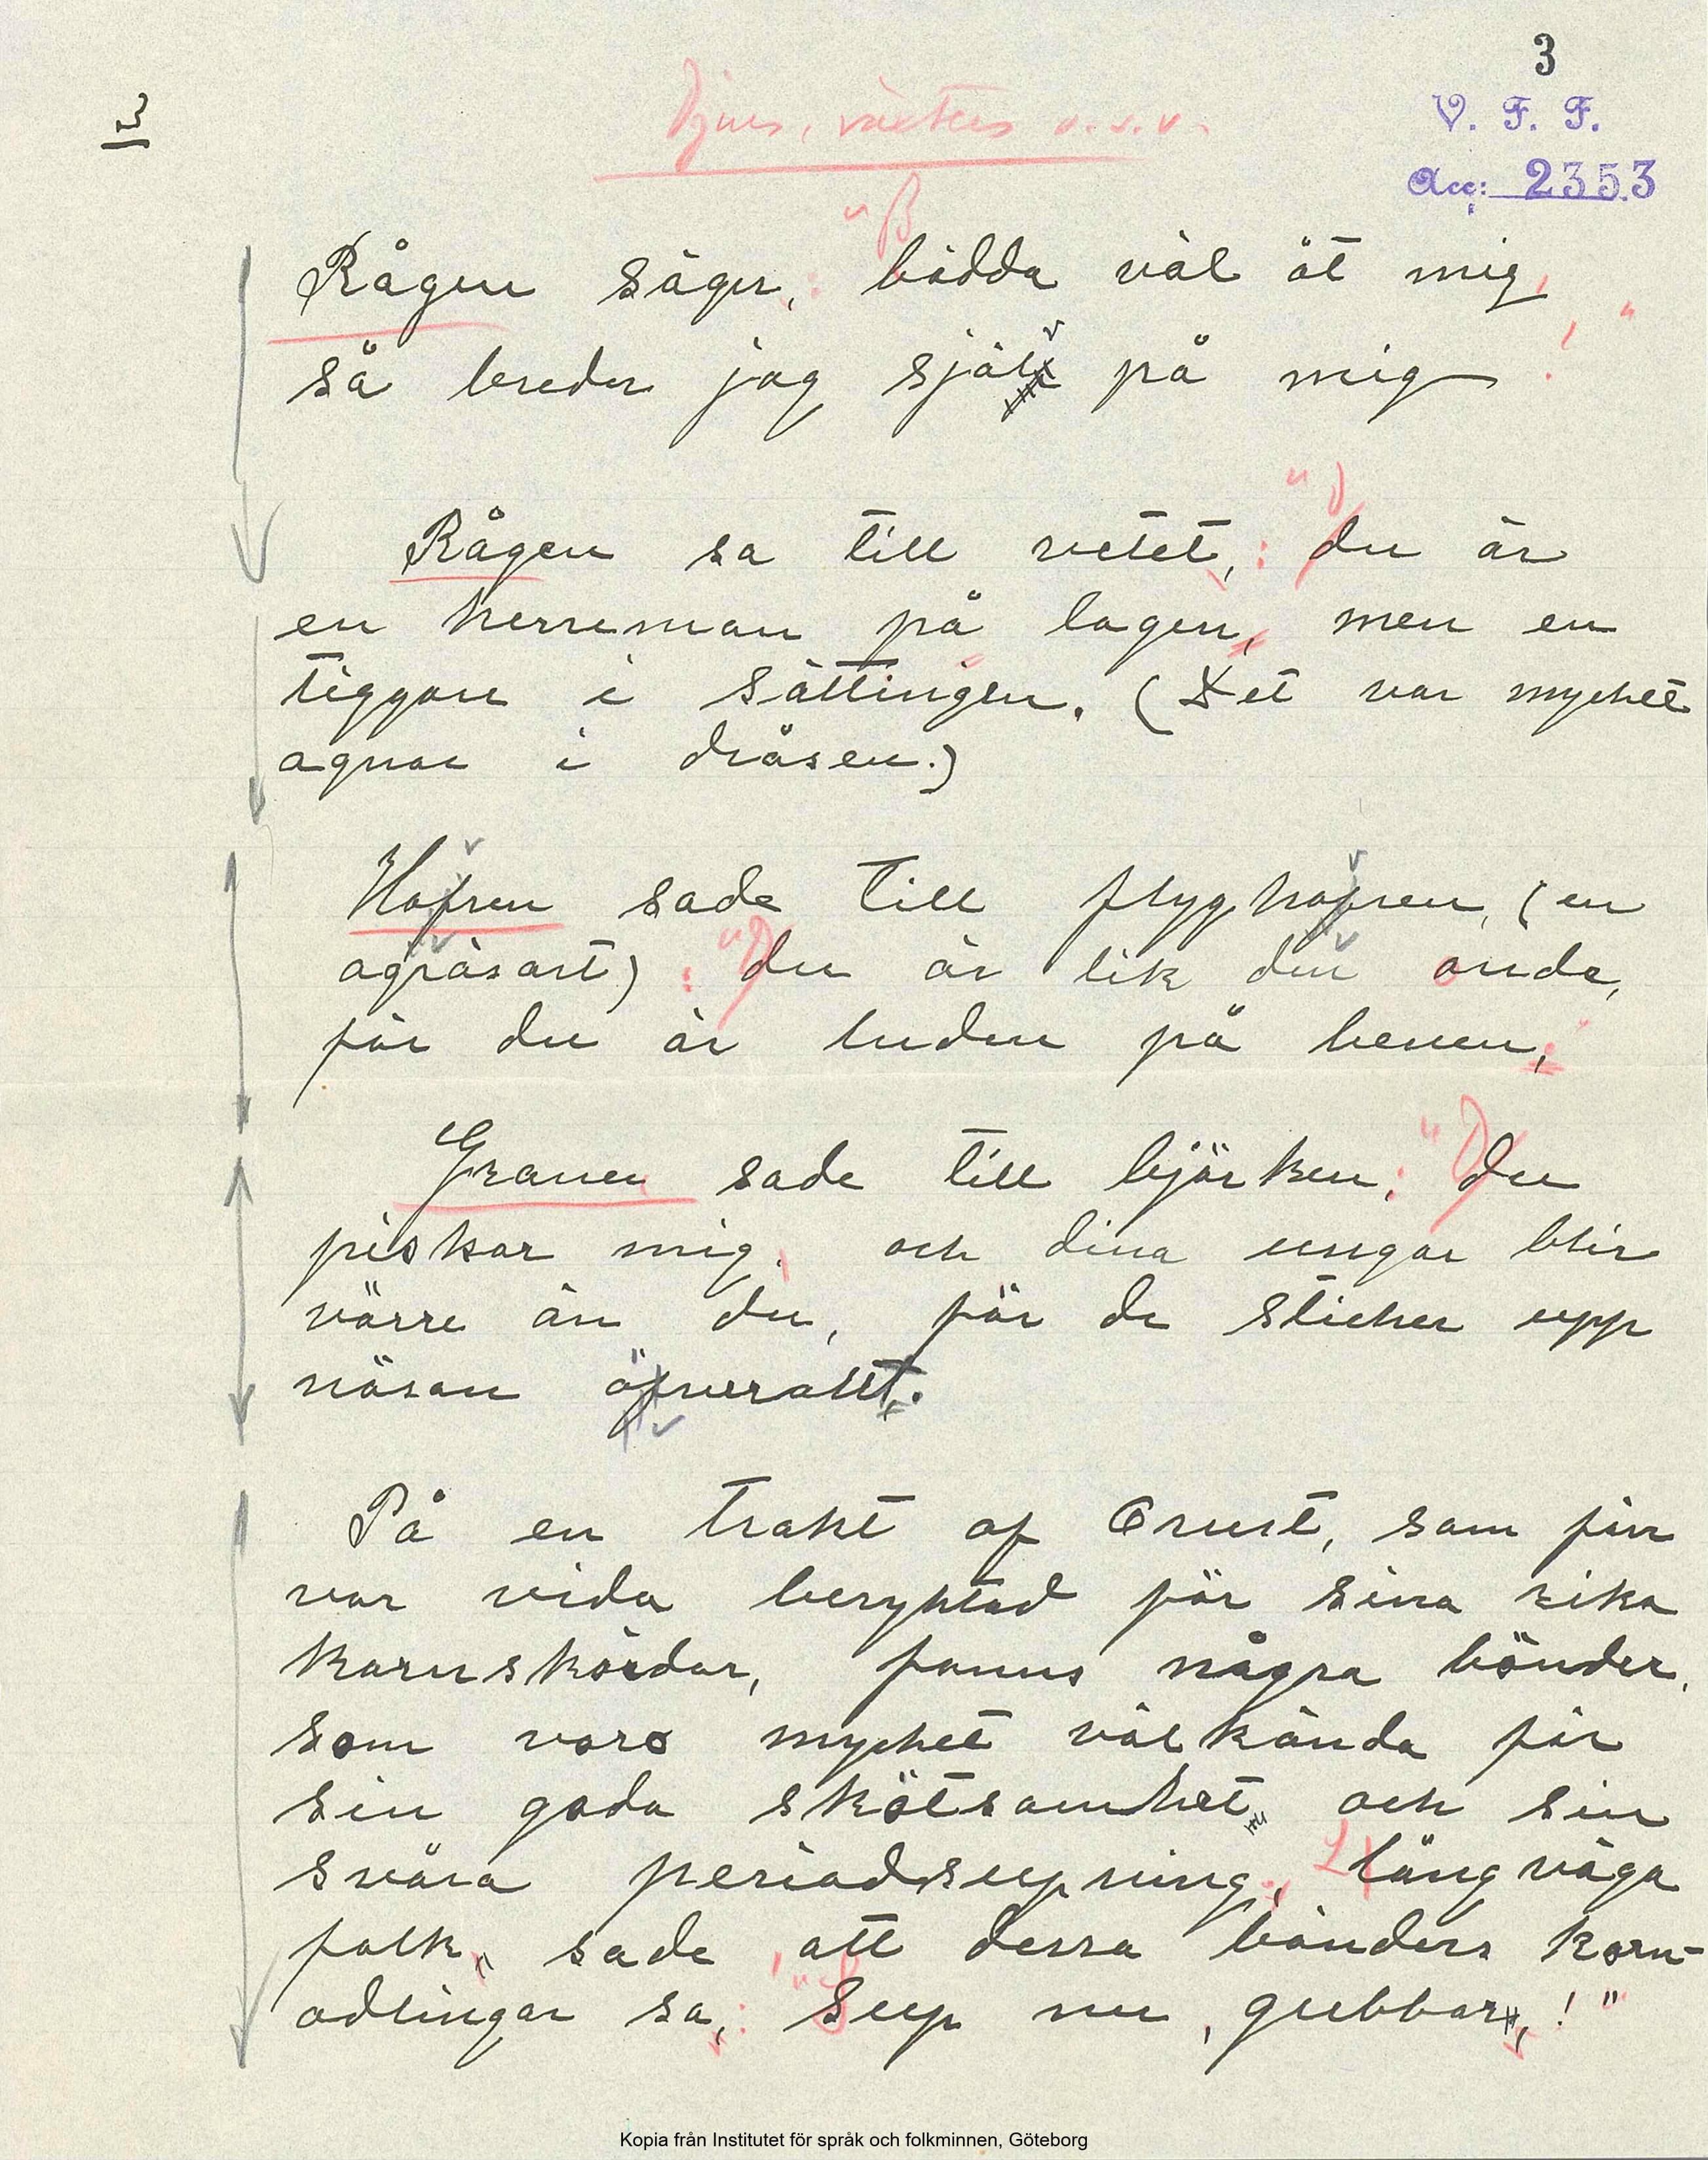 3
3
Djurs, växters o.s.v.
V. F. F.
Acc: 2353
Rågen säger: "Bädda väl åt mig,
så breder jag själv på mig!"
Rågen sa till vetet: "Du är
en herreman på logen, men en
tiggare i sättingen." (Det var mycket
agnar i dråsen.)
Havren sade till flyghavren, (en
ogräsart): "Du är lik den onde,
för du är luden på benen."
Granen sade till björken: "Du
piskar mig, och dina ungar blir
värre än du, för de sticker upp
näsan överallt."
På en trakt af Orust, som förr
var vida beryktad för sina rika
kornskördar, fanns några bönder,
som voro mycket välkända för
sin goda skötsamhet och sin
svåra periodsupning. Långväga
folk sade, att dessa bönders korn-
odlingar sa: "Sup nu, gubbar!"
Kopia från Institutet för språk och folkminnen, Göteborg